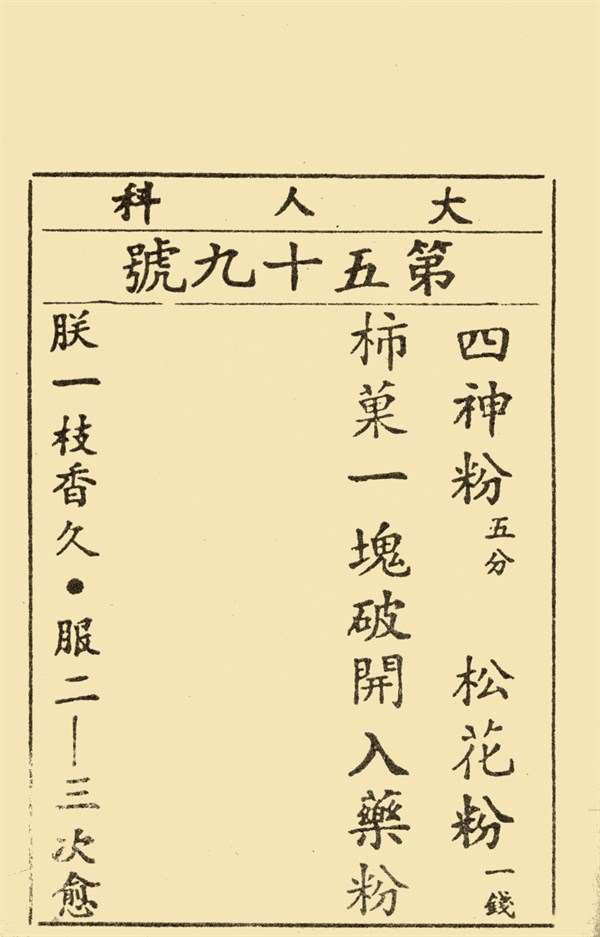 大人科
第五十九號
四神粉五分 松花粉一錢
柿菓一塊破開入藥粉
朕一枝香久●服二—三次愈